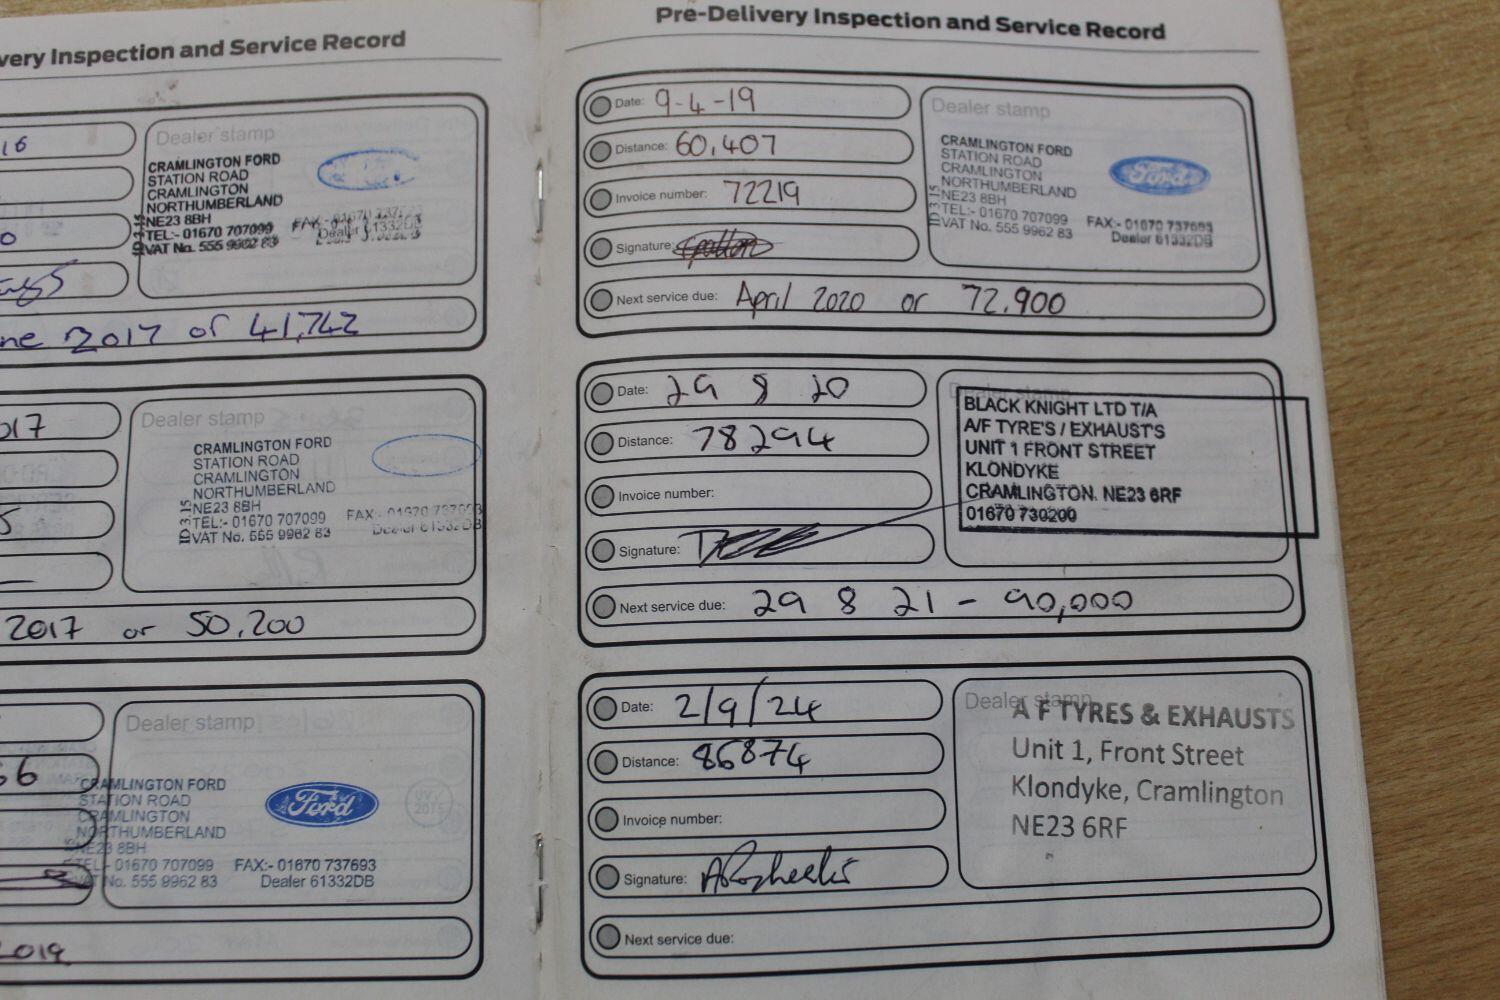 very Inspection and Service Record
16
Dealer stamp
CRAMLINGTON FORD
STATION ROAD
CRAMLINGTON
NORTHUMBERLAND
NE23 8BH
TEL:- 01670 707099
VAT No. 555 9962 83
ne 2017 or 41,742
017
Dealer stamp
CRAMLINGTON FORD
STATION ROAD
CRAMLINGTON
NORTHUMBERLAND
NE23 8BH
TEL:- 01670 707099 FAX:- 01670 737693
VAT No. 555 9962 83 Dealer 61332DB
2017 or 50,200
Dealer stamp
66
CRAMLINGTON FORD
STATION ROAD
CRAMLINGTON
NORTHUMBERLAND
NE23 8BH
TEL:- 01670 707099 FAX:- 01670 737693
VAT No. 555 9962 83 Dealer 61332DB
Ford
2019
Pre-Delivery Inspection and Service Record
Date: 9-4-19
Distance: 60,407
Invoice number: 72219
Signature:
Next service due: April 2020 or 72,900
Dealer stamp
CRAMLINGTON FORD
STATION ROAD
CRAMLINGTON
NORTHUMBERLAND
NE23 8BH
TEL:- 01670 707099 FAX:- 01670 737693
VAT No. 555 9962 83 Dealer 61332DB
Ford
Date: 29 8 20
Distance: 78294
Invoice number:
Signature:
Next service due: 29 8 21 - 90,000
Dealer stamp
BLACK KNIGHT LTD T/A
A/F TYRE'S / EXHAUST'S
UNIT 1 FRONT STREET
KLONDYKE
CRAMLINGTON. NE23 6RF
01670 730200
Date: 2/9/24
Distance: 86874
Invoice number:
Signature:
Next service due:
Dealer stamp
A F TYRES & EXHAUSTS
Unit 1, Front Street
Klondyke, Cramlington
NE23 6RF